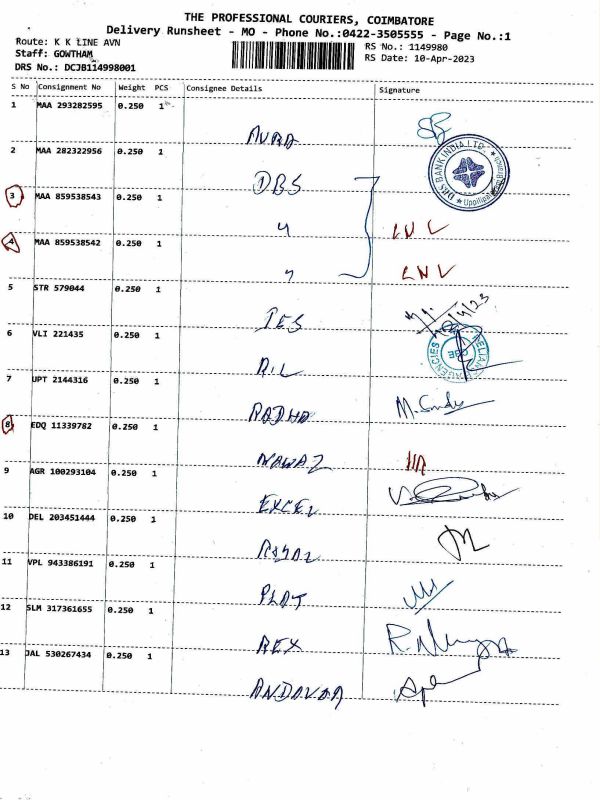 THE PROFESSIONAL COURIERS, COIMBATORE
Delivery Runsheet - MO - Phone No.:0422-3505555 - Page No.:1
Route: K K LINE AVN
RS No.: 1149980
Staff: GOWTHAM
RS Date: 10-Apr-2023
DRS No.: DCJB114998001
S No Consignment No Weight PCS Consignee Details Signature
1 MAA 293282595 0.250 1
AURA
2 MAA 282322956 0.250 1
DBS
DBS BANK INDIA LTD.
3 MAA 859538543 0.250 1
"
LNL
4 MAA 859538542 0.250 1
"
LNL
5 STR 579044 0.250 1
IES
6 VLI 221435 0.250 1
RIL
AGENCIES
CBE
7 UPT 2144316 0.250 1
RADHA
8 EDQ 11339782 0.250 1
NAWAZ
9 AGR 100293104 0.250 1
EXCEL
10 DEL 203451444 0.250 1
ROYAL
11 VPL 943386191 0.250 1
PLAT
12 SLM 317361655 0.250 1
REX
13 JAL 530267434 0.250 1
ANDAVAR